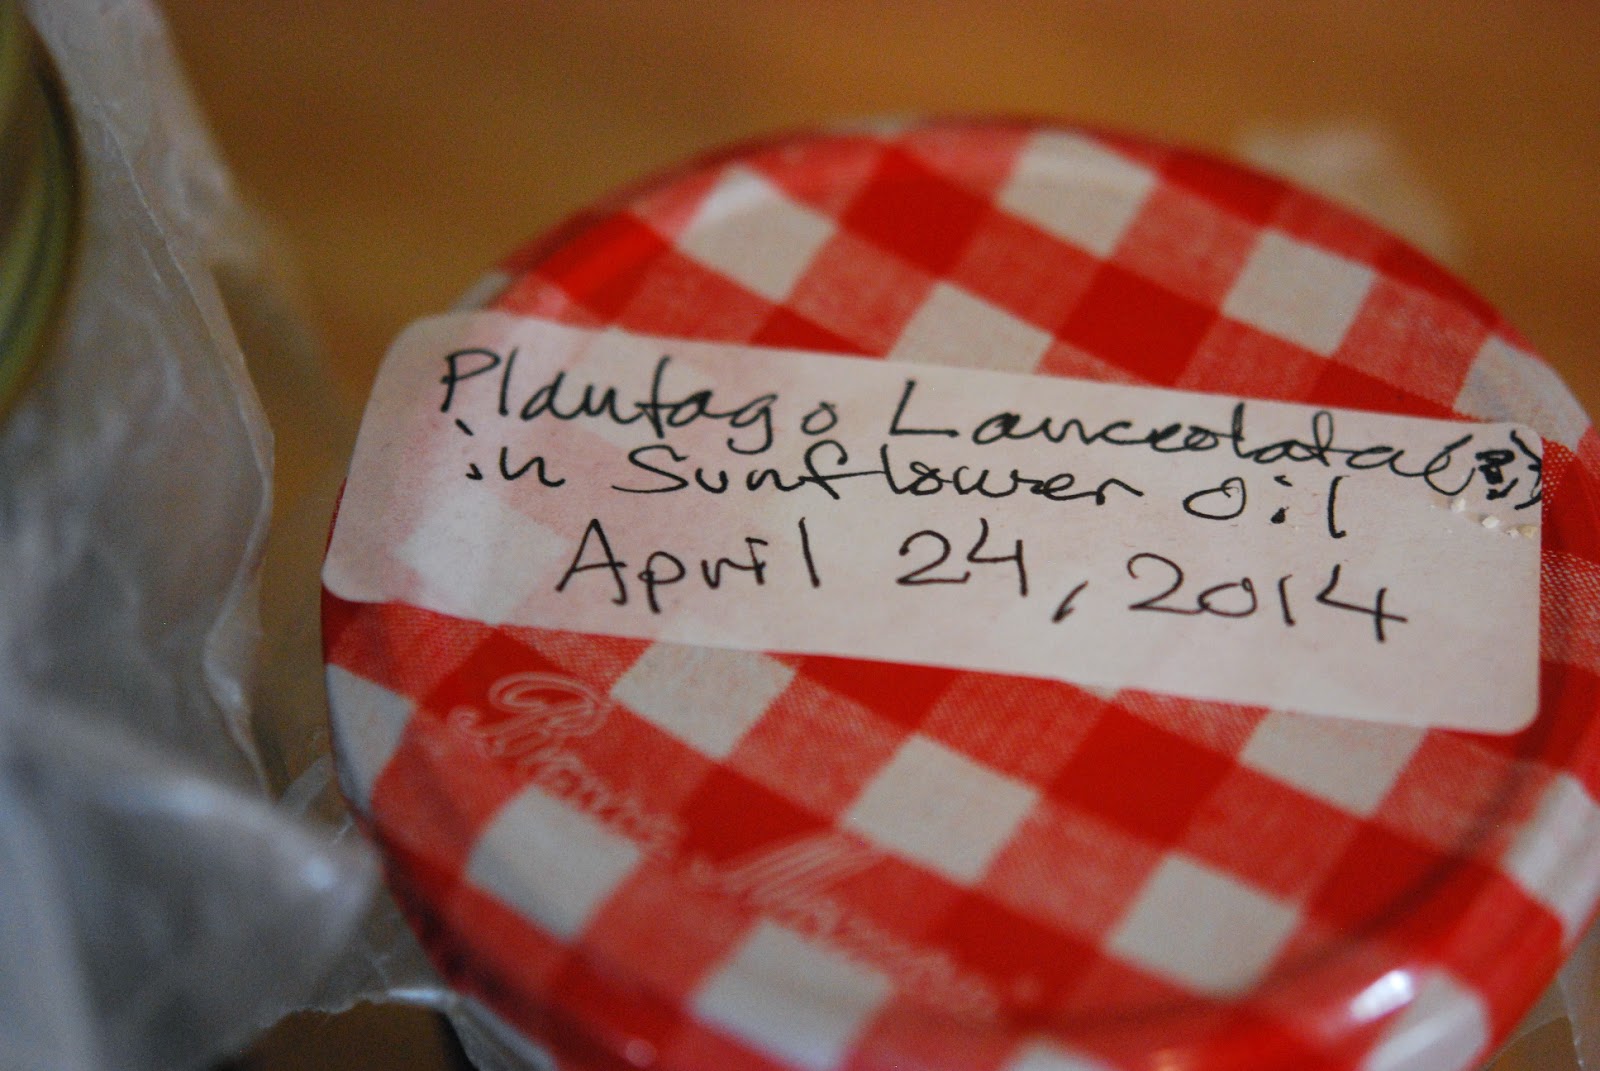 Plantago Lanceolata (?)
in Sunflower oil
April 24, 2014
Bonne Maman